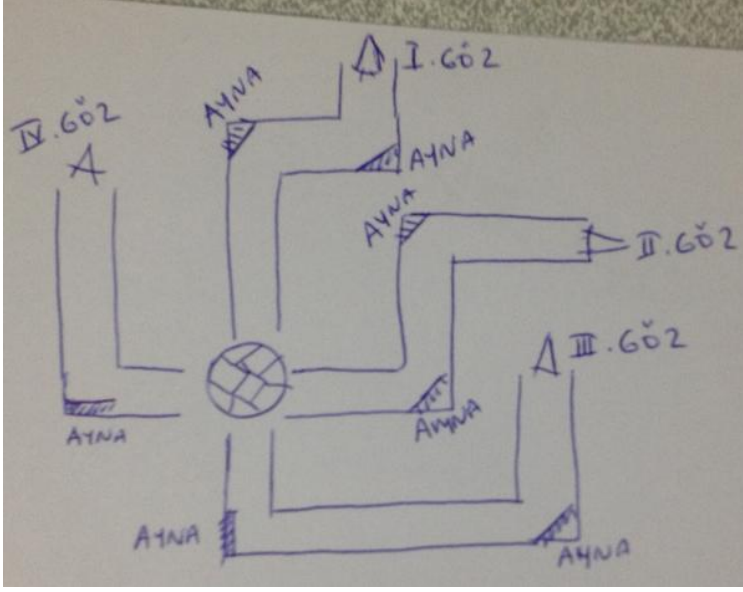 I.GÖZ
AYNA
IV.GÖZ
AYNA
AYNA
II.GÖZ
III.GÖZ
AYNA
AYNA
AYNA
AYNA